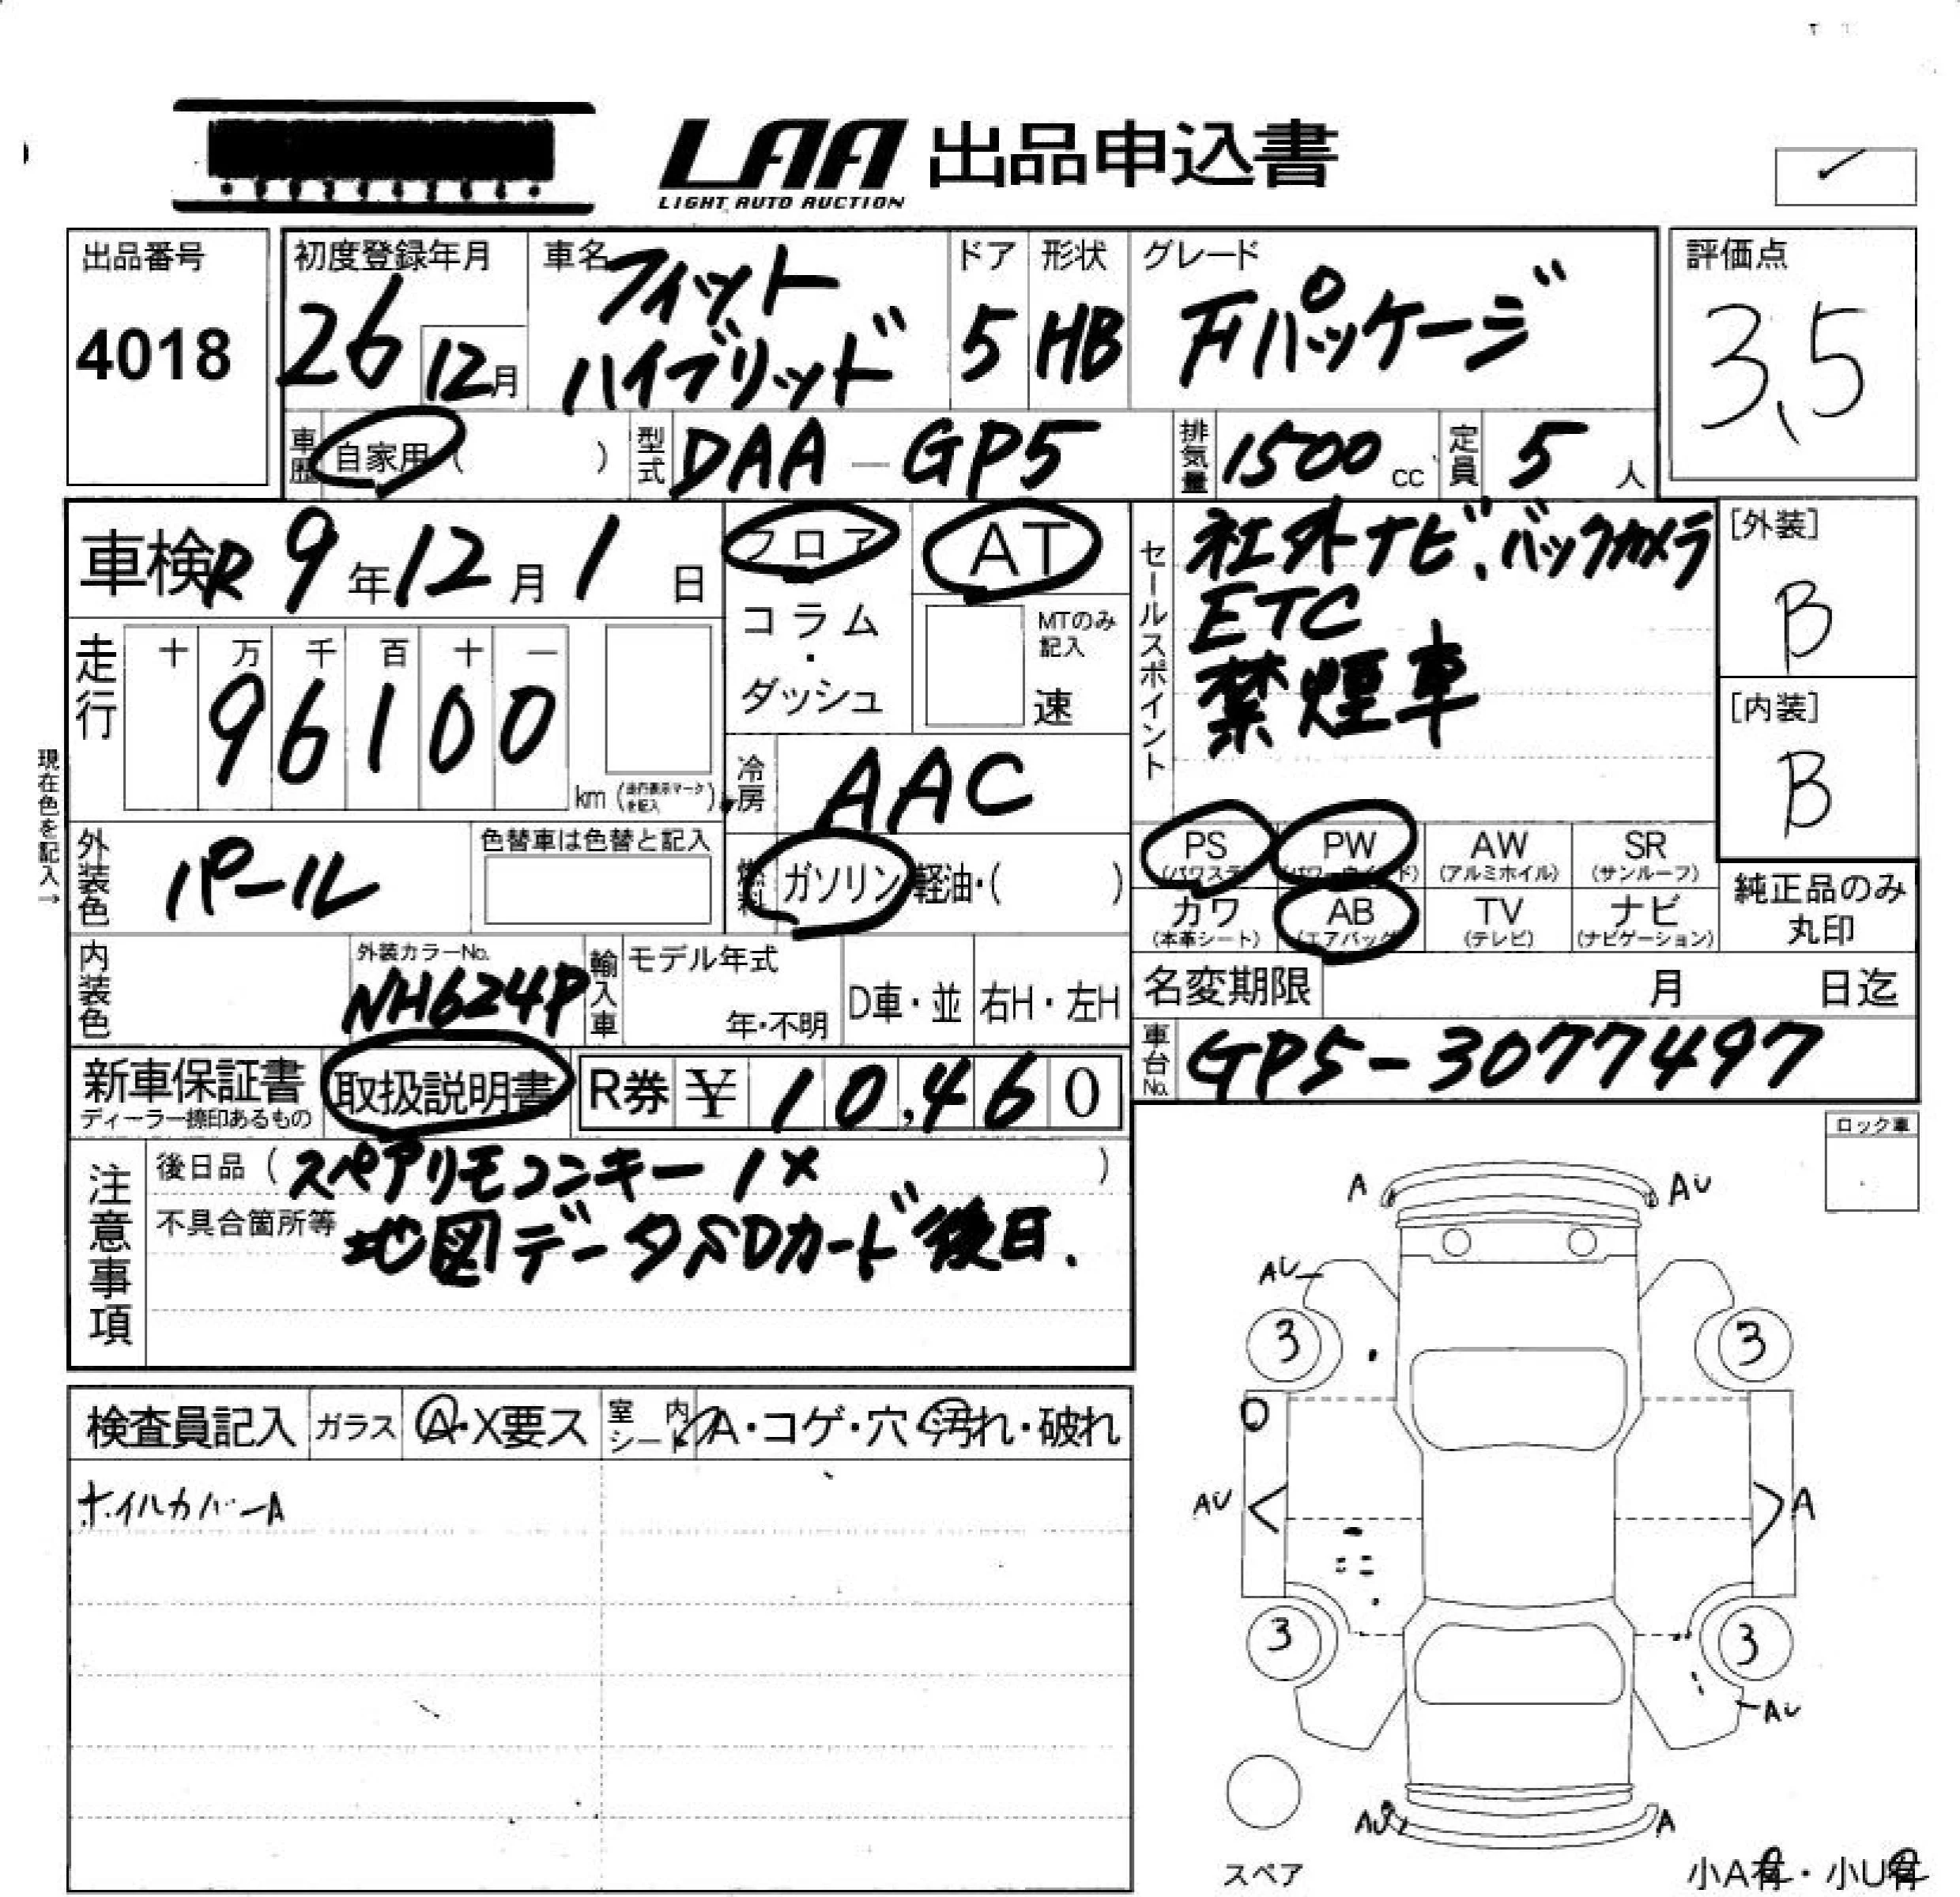 LAA 出品申込書
LIGHT AUTO AUCTION
出品番号
4018
初度登録年月
26
12月
車名
フィット
ハイブリッド
ドア
5
形状
HB
グレード
Fパッケージ
評価点
3.5
車歴 自家用 ( )
型式 DAA-GP5
排気量 1500 cc
定員 5 人
車検 R 9 年 12 月 1 日
フロア
コラム
・
ダッシュ
AT
MTのみ
記入
速
走行
十 万 千 百 十 一
9 6 1 0 0
km (走行表示マークを記入)
冷房 AAC
セールスポイント
社外ナビ、バックカメラ
ETC
禁煙車
[外装]
B
[内装]
B
現在色を記入→
外装色 パール
色替車は色替と記入
燃料 ガソリン 軽油・( )
PS (パワステ)
PW (パワーウインド)
AW (アルミホイル)
SR (サンルーフ)
カワ (本革シート)
AB (エアバッグ)
TV (テレビ)
ナビ (ナビゲーション)
純正品のみ
丸印
内装色
外装カラーNo.
NH624P
輸入車
モデル年式
年・不明
D車・並
右H・左H
名変期限 月 日迄
車台No. GP5-3077497
新車保証書
ディーラー捺印あるもの
取扱説明書
R券 ¥ 10,460
注意事項
後日品 (スペアリモコンキー 1× )
不具合箇所等 地図データSDカード後日.
ロック車
検査員記入
ガラス A・X要ス
室内シート A・コゲ・穴・汚れ・破れ
ホイルカバーA
A
AU
AU
3
3
AU
A
3
3
AU
AU
A
スペア
小A有・小U有